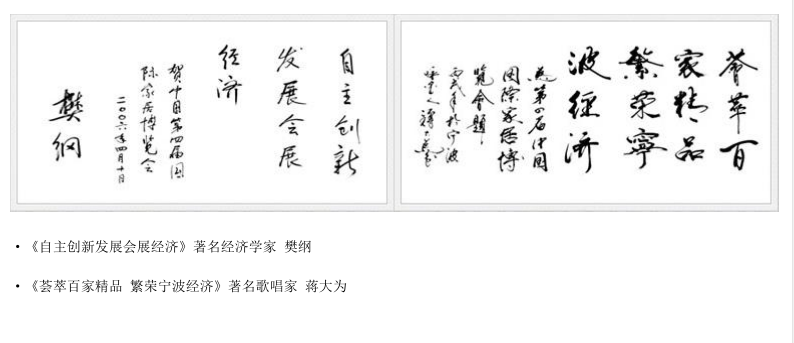 自主创新
发展会展
经济
贺中国第四届国
际家居博览会
二〇〇六年四月十日
樊纲
薈萃百
家精品
繁荣寧
波經济
为第四届中国
国际家居博
览會题
丙戌年於宁波
•《自主创新发展会展经济》著名经济学家 樊纲
•《荟萃百家精品 繁荣宁波经济》著名歌唱家 蒋大为